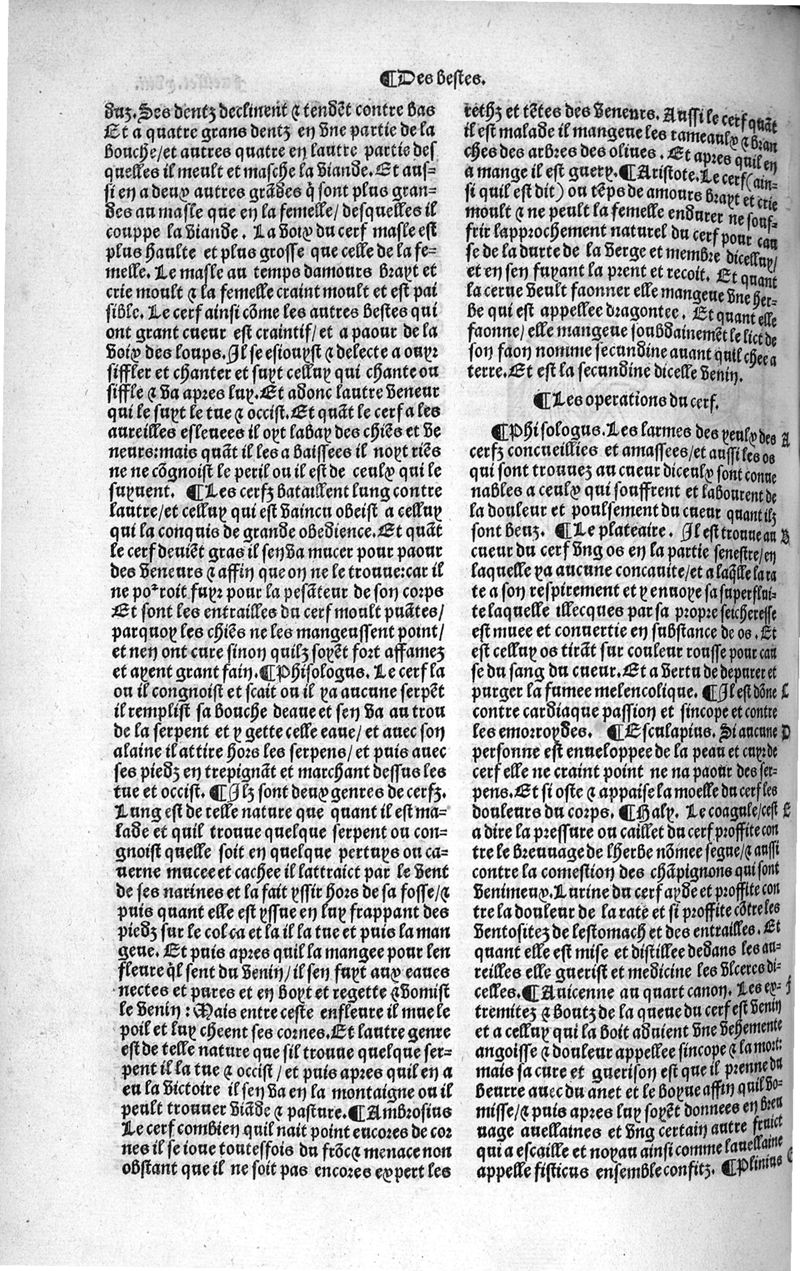 ¶Des bestes.
duz. Ses dentz declinent & tendēt contre bas
Et a quatre grans dentz en vne partie de la
bouche/et autres quatre en lautre partie des
quelles il meult et masche la viande. Et aus-
si en a deux autres grādes q̄ sont plus gran-
des au masle que en la femelle/ desquelles il
couppe la viande. La voix du cerf masle est
plus haulte et plus grosse que celle de la fe-
melle. Le masle au temps damours brayt et
crie moult & la femelle craint moult et est pai
sible. Le cerf ainsi cōme les autres bestes qui
ont grant cueur est craintif/ et a paour de la
voix des loups. Il se esiouyst & delecte a ouyr
siffler et chanter et suyt celluy qui chante ou
siffle & va apres luy. Et adonc lautre veneur
qui le suyt le tue & occist. Et quāt le cerf a les
aureilles esleuees il oyt labay des chiēs et ve
neurs: mais quāt il les a baissees il noyt riēs
ne ne cōgnoist le peril ou il est de ceulx qui le
suyuent. ¶Les cerfz bataillent lung contre
lautre/et celluy qui est vaincu obeist a celluy
qui la conquis de grande obedience. Et quāt
le cerf deuiēt gras il sen va mucer pour paour
des veneurs & affin que on ne le trouue: car il
ne porroit fuyr pour la pesāteur de son corps
Et sont les entrailles du cerf moult puātes/
parquoy les chiēs ne les mangeussent point/
et nen ont cure sinon quilz soyēt fort affamez
et ayent grant fain. ¶Phisologus. Le cerf la
ou il congnoist et scait ou il ya aucune serpēt
il remplist sa bouche deaue et sen va au trou
de la serpent et y gette celle eaue/ et auec son
alaine il attire hors les serpens/ et puis auec
ses piedz en trepignāt et marchant dessus les
tue et occist. ¶Ilz sont deux genres de cerfz.
Lung est de telle nature que quant il est ma-
lade et quil trouue quelque serpent ou con-
gnoist quelle soit en quelque pertuys ou ca-
uerne mucee et cachee il lattraict par le vent
de ses narines et la fait yssir hors de sa fosse/&
puis quant elle est yssue en luy frappant des
piedz sur le col ca et la il la tue et puis la man
geue. Et puis apres quil la mangee pour len
fleure q̄l sent du venin/ il sen fuyt aux eaues
nectes et pures et en boyt et regette & vomist
le venin: Mais entre ceste enfleure il mue le
poil et luy cheent ses cornes. Et lautre genre
est de telle nature que sil trouue quelque ser-
pent il la tue & occist/ et puis apres quil en a
eu la victoire il sen va en la montaigne ou il
peult trouuer viāde & pasture. ¶Ambrosius
Le cerf combien quil nait point encores de cor
nes il se ioue toutesfois du frōt & menace non
obstant que il ne soit pas encores expert les
rethz et tētes des veneurs. Aussi le cerf quāt
il est malade il mangeue les rameaulx & bran
ches des arbres des oliues. Et apres quil en
a mange il est guery. ¶Aristote. Le cerf (ain-
si quil est dit) ou tēps de amours brayt et crie
moult & ne peult la femelle endurer ne souf-
frir lapprochement naturel du cerf pour cau
se de la durte de la verge et membre dicelluy/
et en sen fuyant la prent et recoit. Et quant
la cerue veult faonner elle mangeue vne her-
be qui est appellee dragontee. Et quant elle
faonne/ elle mangeue soubdainemēt le lict de
son faon nomme secundine auant quil chee a
terre. Et est la secundine dicelle venin.
¶Les operations du cerf.
¶Phisologus. Les larmes des yeulx des A
cerfz concueillies et amassees/et aussi les os
qui sont trouuez au cueur diceulx sont conue
nables a ceulx qui souffrent et labourent de
la douleur et poulsement du cueur quant ilz
sont beuz. ¶Le plateaire. Il est trouue au B
cueur du cerf vng os en la partie senestre/en
laquelle ya aucune concauite/et a laq̄lle la ra
te a son respirement et y enuoye sa superflui-
te laquelle illecques par sa propre seicheresse
est muee et conuertie en substance de os. Et
est celluy os tirāt sur couleur rousse pour cau
se du sang du cueur. Et a vertu de depurer et
purger la fumee melencolique. ¶Il est dōne C
contre cardiaque passion et sincope et contre
les emorroydes. ¶Esculapius. Si aucune D
personne est enuelopper de la peau et cuyr de
cerf elle ne craint point ne na paour des ser-
pens. Et si oste & appaise la moelle du cerf les
douleurs du corps. ¶Haly. Le coagule/cest E
a dire la pressure ou caillet du cerf proffite con
tre le breuuage de lherbe nōmee segue/& aussi
contre la comestion des chāpignons qui sont
venimeux. Lurine du cerf ayde et proffite con
tre la douleur de la rate et si proffite cōtre les
ventositez de lestomach et des entrailles. Et
quant elle est mise et distillee dedans les au-
reilles elle guerist et medicine les vlceres di-
celles. ¶Auicenne au quart canon. Les ex-
tremitez & boutz de la queue du cerf est venin
et a celluy qui la boit aduient vne vehemente
angoisse & douleur appellee sincope & la mort:
mais sa cure et guerison est que il prenne du
beurre auec du anet et le boyue affin quil vo-
misse/& puis apres luy soyēt donnees en breu
uage auellaines et vng certain autre fruict
qui a escaille et noyau ainsi comme lauellaine
appelle fisticus ensemble confitz. ¶Plinius